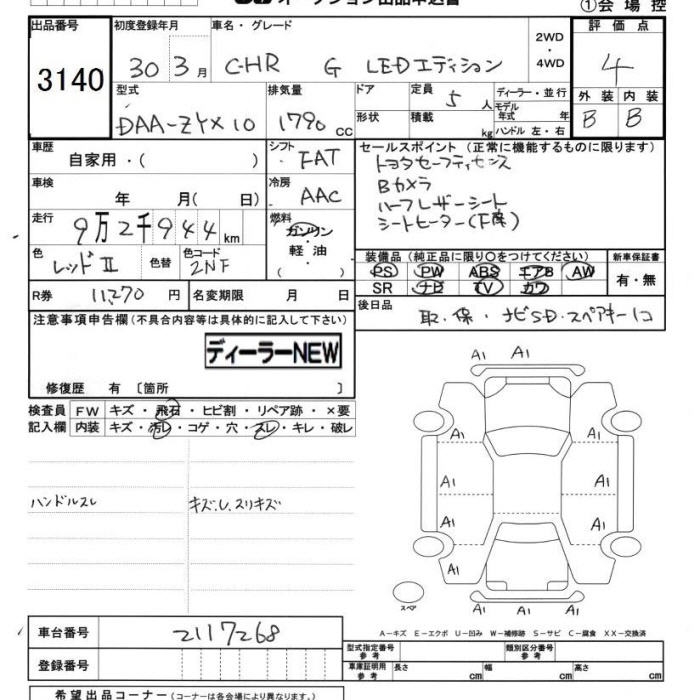 オークション出品申込書
①会場控
出品番号
3140
初度登録年月
30 3月
車名・グレード
C-HR G LEDエディション
2WD
・
4WD
評価点
4
外装 内装
B B
型式
DAA-ZYX10
排気量
1790 cc
ドア
形状
定員
5人
積載
kg
ディーラー・並行
モデル年式 年
ハンドル 左・右
車歴
自家用・( )
シフト
FAT
車検
年 月( 日)
冷房
AAC
走行
9万2千944km
燃料
ガソリン
・
軽・油
( )
色
レッドⅡ
色替
色コード
2NF
R券
11,270円
名変期限 月 日
セールスポイント(正常に機能するものに限ります)
トヨタセーフティセンス
Bカメラ
ハーフレザーシート
シートヒーター(F席)
装備品(純正品に限り○をつけてください)
PS PW ABS エアB AW
SR ナビ TV カワ
新車保証書
有・無
後日品
取・保・ナビSD・スペアキー1コ
注意事項申告欄(不具合内容等は具体的に記入して下さい)
ディーラーNEW
修復歴 有〔箇所 〕
検査員
記入欄
FW キズ・飛石・ヒビ割・リペア跡・×要
内装 キズ・汚レ・コゲ・穴・スレ・キレ・破レ
ハンドルスレ
キズ.U.スリキズ
A1 A1
A1 A1
A1 A1
A1 A1
A1 A1
スペア
A－キズ E－エクボ U－凹み W－補修跡 S－サビ C－腐食 XX－交換済
車台番号
2117268
登録番号
型式指定番号
参考
類別区分番号
参考
車庫証明用
参考
長さ cm 幅 cm 高さ cm
希望出品コーナー(コーナーは各会場により異なります。)